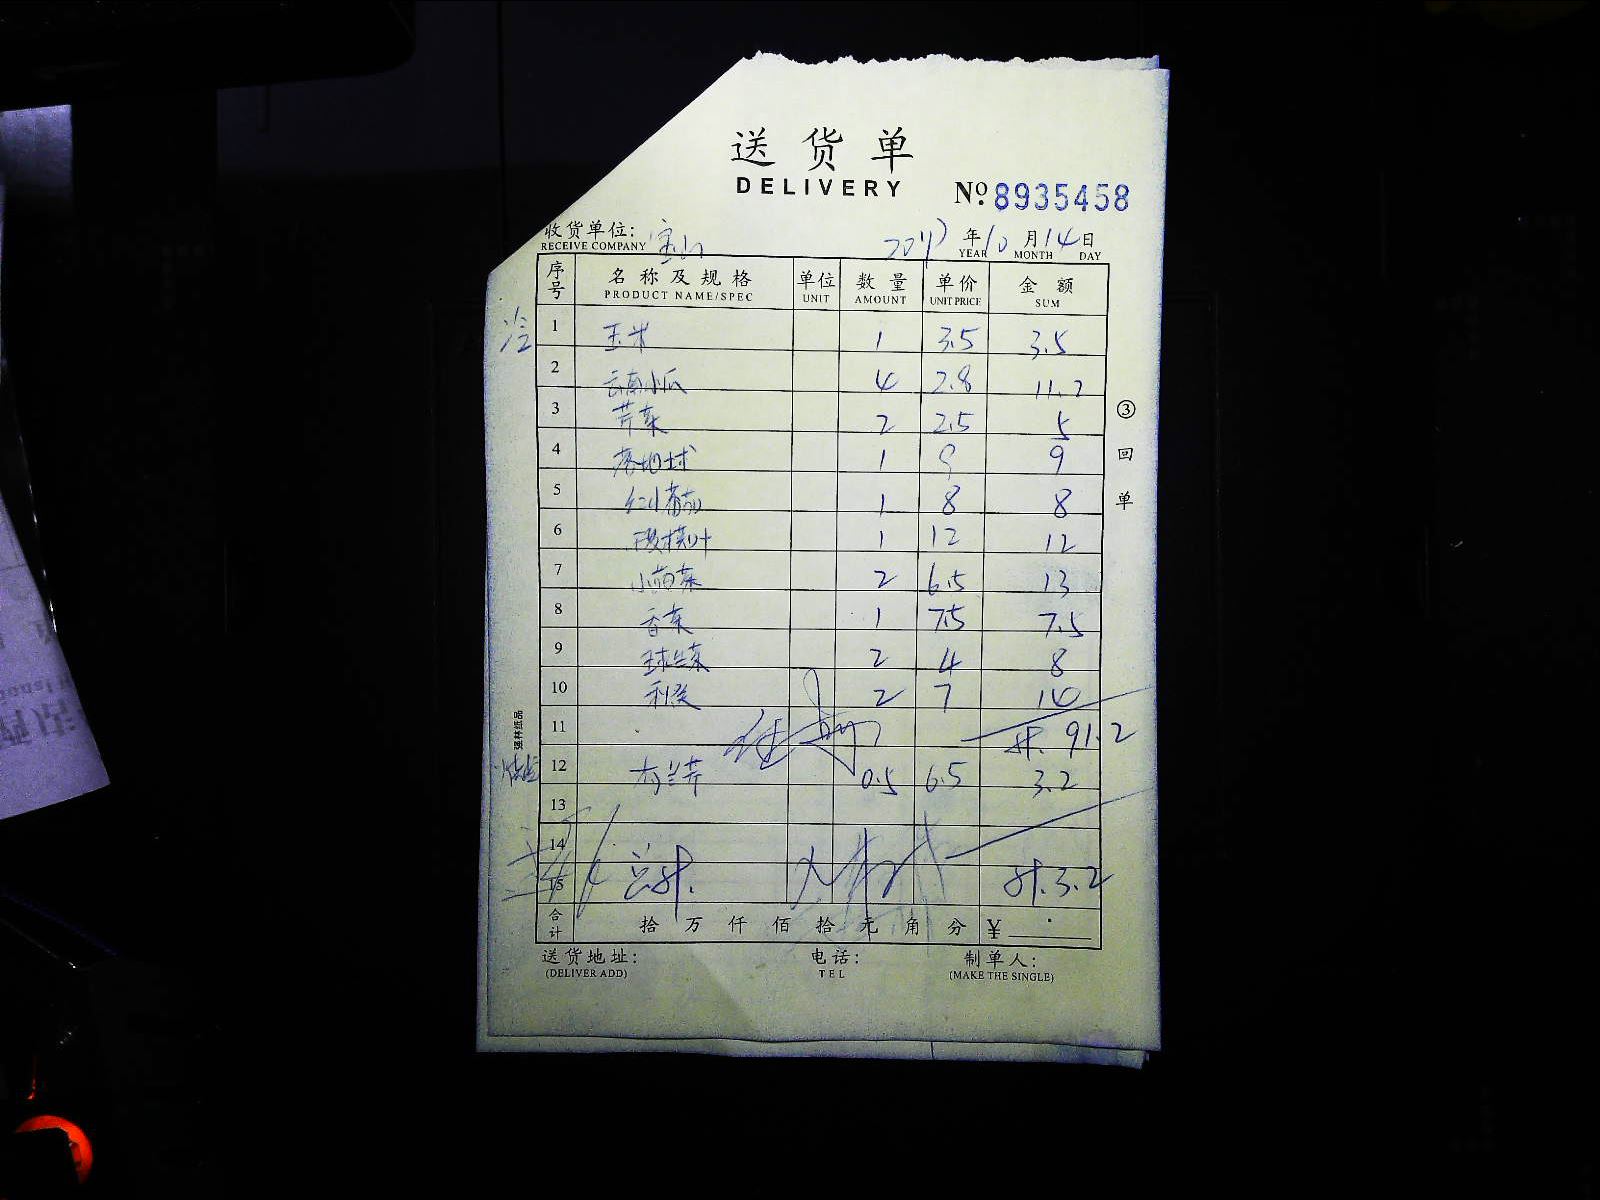 送货单
DELIVERY
№ 8935458
收货单位: 宝山 年10月14日
RECEIVE COMPANY YEAR MONTH DAY
序号 名称及规格 单位 数量 单价 金额
PRODUCT NAME/SPEC UNIT AMOUNT UNIT PRICE SUM
冷 1 玉米 1 3.5 3.5
2 云南小瓜 4 2.8 11.2
3 芹菜 2 2.5 5
4 落地球 1 9 9
5 红小番茄 1 8 8
6 1 12 12
7 小苗菜 2 6.5 13
8 香菜 1 7.5 7.5
9 球生菜 2 4 8
10 2 7 14
11 计. 91.2
12 香兰芹 0.5 6.5 3.2
13
14
15 总计. 计.3.2
合计 拾 万 仟 佰 拾 元 角 分 ¥
送货地址: 电话: 制单人:
(DELIVER ADD) TEL (MAKE THE SINGLE)
③回单
强林纸品